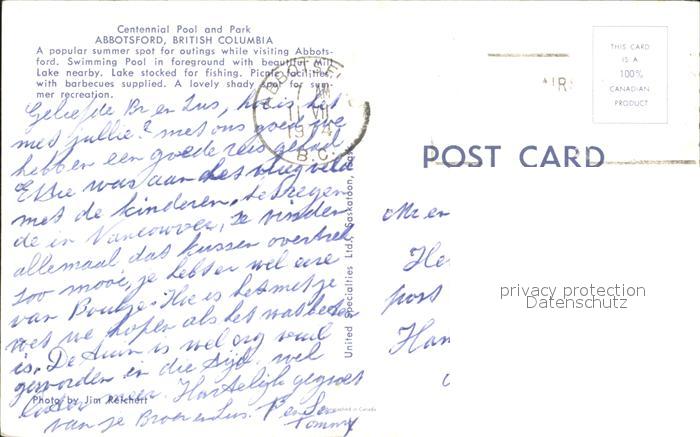 Centennial Pool and Park
ABBOTSFORD, BRITISH COLUMBIA
A popular summer spot for outings while visiting Abbots-
ford. Swimming Pool in foreground with beautiful Mill
Lake nearby. Lake stocked for fishing. Picnic facilities
with barbecues supplied. A lovely shady spot for sum-
mer recreation.
Geliefde Br en Zus, hoe is het
met jullie? met ons goed we
hebben een goede reis gehad
Elsie was aan het vliegveld
met de kinderen, te regen
de in Vancouver, Ze vinden
allemaal dat kussen overtrek
zoo mooi, je hebt er wel eere
van Boukje. Hoe is het met je
wet we hopen als het wat beter
is. De tuin is wel erg vuil
geworden en die tijd. wel
Hartelijk gegroet
van je Broer en Zus.
Tommy
Photo by Jim Reichert
United Specialties Ltd., Saskatoon, Sask.
ABBOTSF
AM
11 VII
1974
B.C.
AIR
THIS CARD
IS A
100%
CANADIAN
PRODUCT
POST CARD
Mr en
He
post
Han
privacy protection
Datenschutz